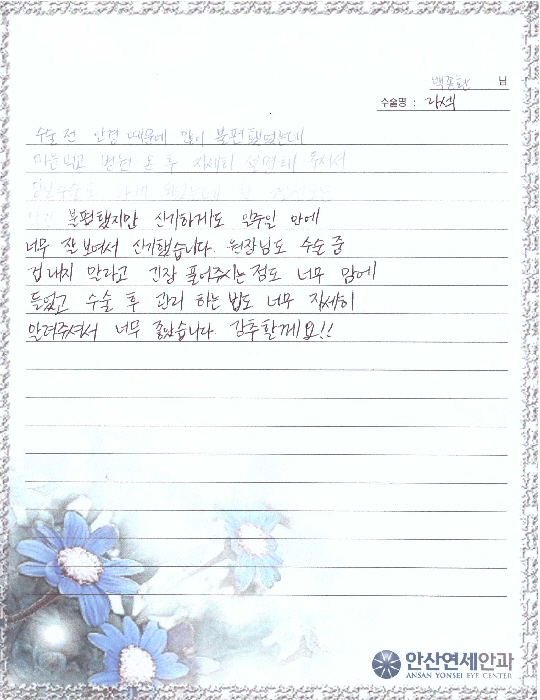 백종환 님
수술명 : 라섹
수술 전 안경 때문에 많이 불편했었는데
마음먹고 병원 온 후 자세히 설명해 주셔서
당일수술로 하게 되었는데 한
불편했지만 신기하게도 일주일 안에
너무 잘 보여서 신기했습니다. 원장님도 수술 중
겁내지 말라고 긴장 풀어주시는 점도 너무 맘에
들었고 수술 후 관리 하는 법도 너무 자세히
알려주셔서 너무 좋았습니다. 강추할께요!!
안산연세안과
ANSAN YONSEI EYE CENTER